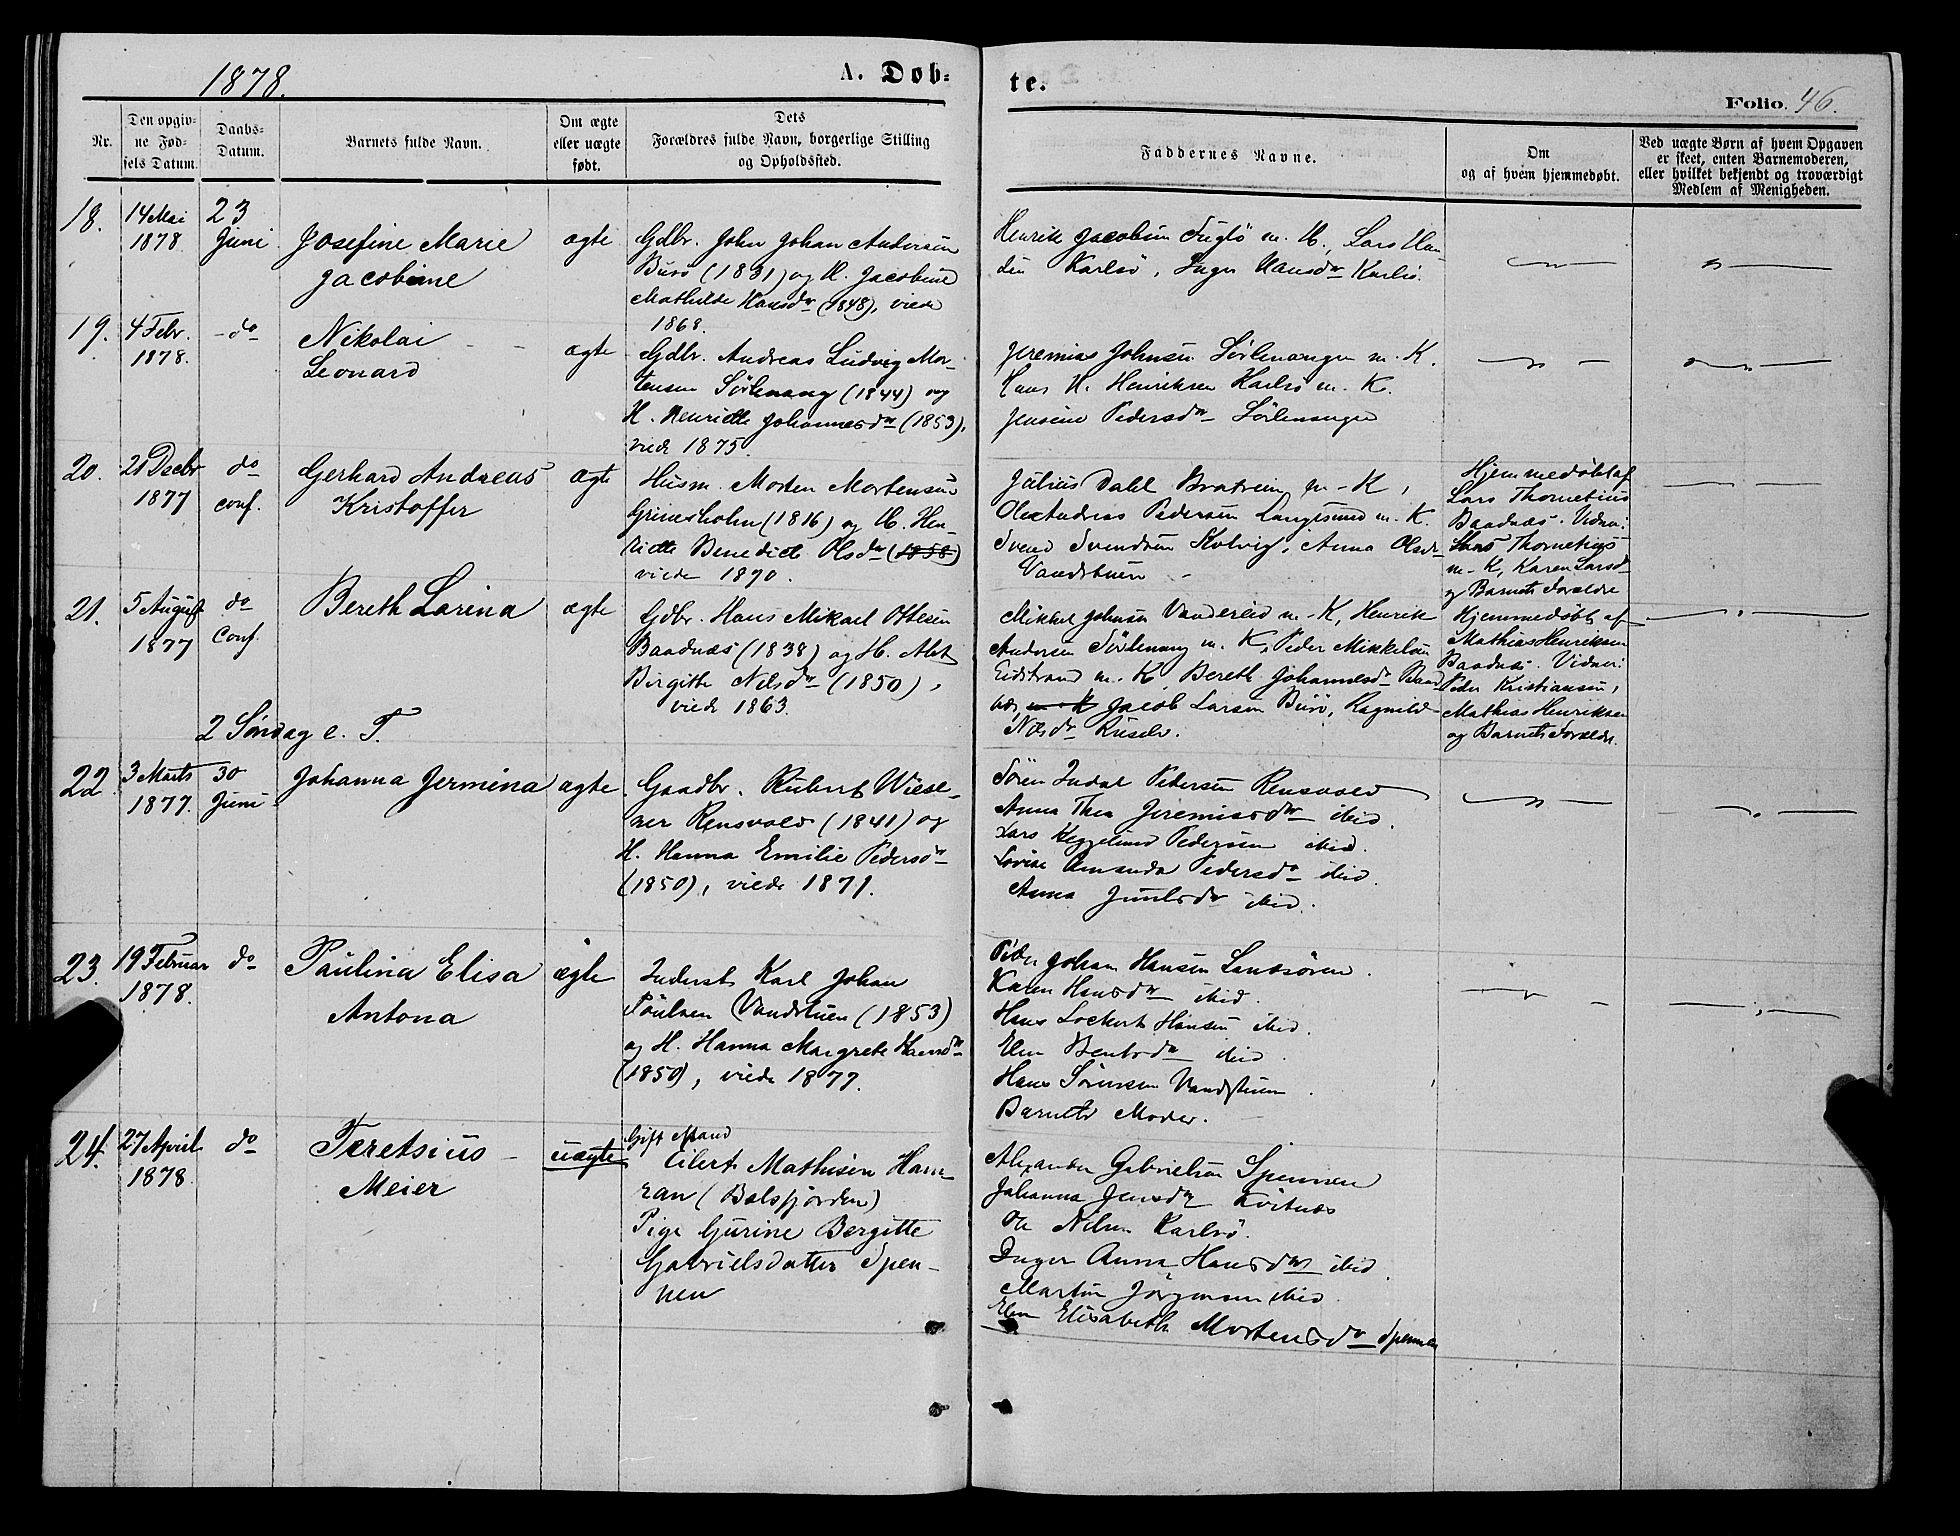 1878.
A. Døb-
te.
Folio. 46.
Nr.
Den opgiv-
ne Fød-
sels Datum.
Daabs-
Datum.
Barnets fulde Navn.
Om ægte
eller uægte
født.
Dets
Forældres fulde Navn, borgerlige Stilling
og Opholdssted.
Faddernes Navne.
Om
og af hvem hjemmedøbt.
Ved uægte Børn af hvem Opgaven
er skeet, enten Barnemoderen,
eller hvilket bekjendt og troværdigt
Medlem af Menigheden.
18.
14 Mai
1878.
23
Juni
Josefine Marie
Jacobine
ægte
Gdbr. John Johan Andersen
Burø (1831) og H. Jacobine
Mathilde Hansdr (1848), viede
1868.
Henrik Jacobsen Fuglø m. H., Lars Han
sen Karlsø, Inger Hansdr Karlsø.
19.
4 Febr.
1878.
do
Nikolai
Leonard
ægte
Gdbr. Andreas Ludvig Mor-
tensen Sörlenang (1844) og
H. Henriette Johannesdr (1853),
viede 1875.
Jeremias Johnsen Sörlenangen m. K.
Hans H. Henriksen Karlsø m. K.
Jensine Pedersdr Sörlenangen
20.
21 Decbr
1877
do
conf.
Gerhard Andreas
Kristoffer
ægte
Husm. Morten Mortensen
Grimsholm (1816) og H. Hen-
riette Benedicte Olsdr (1858)
viede 1870.
Julius Dahl Bratrein m. K,
Ole Andreas Pedersen Langesund m. K.
Svend Svendsen Kolvig, Anna Olsdr
Vandstuen
Hjemmedöbt af
Lars Thometius
Baadnæs. Vidner:
Lars Thometius
m. K, Karen Larsdr
og Barnets Forældre
21.
5 August
1877
do
Conf.
Bereth Larina
ægte
Gdbr. Hans Mikael Olsen
Baadnæs (1838) og H. Alet
Birgitte Nilsdr (1850),
viede 1863.
Mikkel Johnsen Vandereid m. K, Henrik
Andersen Sörlenang m. K, Peder Mikkelsen
Eidstrand m. K, Bereth Johannesdr Baad
næs, m. K Jacob Larsen Burø, Ragnild
Nilsdr Ruselv.
Hjemmedöbt af
Mathias Henriksen
Baadnæs. Vidner:
Peder Kristiansen,
Mathias Henriksen
og Barnets Forældre.
2 Søndag e. T.
22.
3 Marts
1877.
30
Juni
Johanna Jermina
ægte
Gaadbr. Rubert Wiese-
ner Rensvold (1841) og
H. Hanna Emilie Pedersdr
(1850), viede 1871.
Sören Indal Pedersen Rensvold
Anna Thea Jeremiasdr ibid.
Lars Pedersen ibid.
Lovise Amanda Pedersdr ibid.
Anna ibid.
23.
19 Februar
1878.
do
Paulina Elisa
Antona
ægte
Inderst Karl Johan
Poulsen Vandstuen (1853)
og H. Hanna Margrete Hansdr
(1850), viede 1877.
Peder Johan Hansen Sandsören.
Karen Hansdr ibid.
Hans Lockert Hansen ibid.
Elen Bentsdr ibid.
Hans Sörensen Vandstuen
Barnets Moder.
24.
27 April
1878.
do
Teretsius
Meier
uægte
Gift Mand
Eilert Mathisen Ham-
ran (Balsfjorden)
Pige Gurine Bergitte
Gabrielsdatter Spen-
nen
Alexander Gabrielsen Spennen
Johanna Jensdr Kvitnæs
Ole Nilsen Karlsø.
Inger Anna Hansdr ibid.
Martin Jörgensen ibid.
Elen Elisabeth Mortensdr Spennen